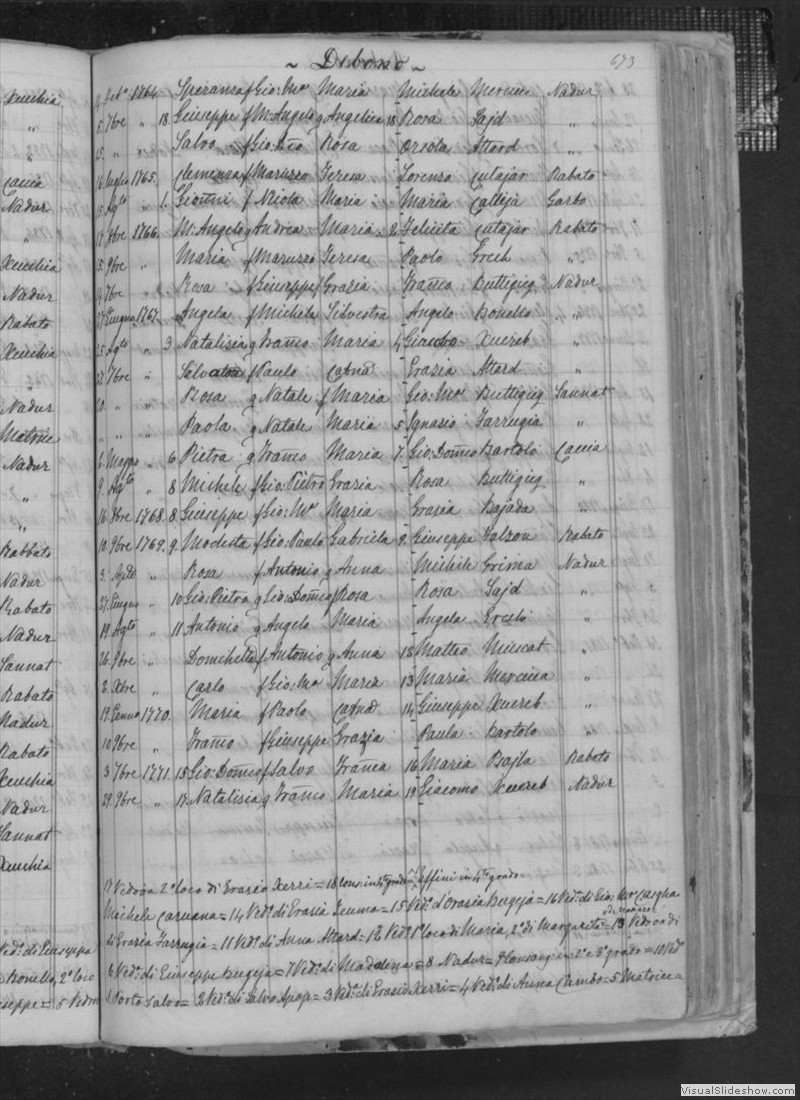 ~ Debono ~
673
4 Feb. 1764 Speranza f Gio: Mª Maria Michele Mercieca Nadur
5 7bre " 18 Giuseppe f M: Angelo g Angelica 18 Rosa Sajd "
15 " " Salvo f Gio: Bño Rosa Orsola Attard "
16 luglio 1765. Clemenza f Maruzzo Teresa Lorenzo Cutajar Rabato
15 Agto " 1. f Niola Maria Maria Calleja Garbo
17 8bre 1766. M: Angelo g Andrea Maria 2 Felicita Cutajar Rabato
15. 9bre " Maria f Maruzzo Teresa Paolo Grech "
7bre " Rosa f Giuseppe f Grazia Franco Buttigieg Nadur
27 Giugno 1767. Angela f Michele Silvestra Angelo Bonello "
25 Agto " 3 Natalizia g Franco Maria 4 Giacobo Xuereb "
22. 7bre " Salvatore f Paulo Catnd Grazia Attard "
20. " " Rosa g Natale f Maria Gio: Mª Buttigieg Sannat
" " " Paola g Natale Maria 5 Ignazio Farrugia "
6 Maggo " 6 Pietra g Franco Maria 7. Gio: Domco Bartolo Caccia
9. Agto " 8 Michele f Gio: Pietro Grazia Rosa Buttigieg "
16. 9bre 1768. 8. Giuseppe f Gio: Mª Maria Grazia Bajada "
10. 9bre 1769. 9. Modesta f Gio: Paulo Gabriela 9. Giuseppe Valzon Rabato
3 Agto " Rosa f Antonio g Anna Michele Grima Nadur
27 Giugno " 10 Gio: Pietro g Gio: Domco f Rosa Rosa Sajd "
19. Agto " 11 Antonio g Angelo Maria Angela Grech "
26. 9bre " f Antonio g Anna 12 Matteo Muscat "
2. Xbre " Carlo f Gio: Mª Maria 13 Maria Mercieca "
19. Genno 1770. Maria f Paolo Catnd 14 Giuseppe Xuereb "
10 9bre " Franco f Giuseppe Grazia Paula Bartolo "
3 7bre 1771. 15 Gio: Domco f Salvo Franca 16 Maria Bajla Rabato
29. 9bre " 17. Natalizia g Franco Maria 19 Giacomo Xuereb Nadur
17 Vedova 2º loco di Grazio Xerri = 18 in 4º grado = Affini in 4º grado =
Michele Caruana = 14 Ved. di Grazia Teuma = 15 Ved. d'Orazia Bugeja = 16 Ved. di Gio: Mª
di Grazia Farrugia = 11 Ved. di Anna Attard = 12 Ved. 1º loco di Maria, 2º di Margarita = 13 Vedova di
6 Ved. di Giuseppe Bugeja = 7 Ved. di Madalena = 8 Nadur = 9 Consang: in 2º e 3º grado = 10 Ved.
1 Porto Salvo = 2 Ved. di Salvo Apap = 3 Ved. di Grazio Xerri = 4 Ved. di Anna = 5 Matrice =
Xeuchia
"
"
Caccia
Nadur
"
Xeuchia
Nadur
Rabato
Xeuchia
"
Nadur
Matrice
Nadur
"
"
Rabbato
Nadur
Rabato
Nadur
Sannat
Rabato
Nadur
Rabato
Xeuchia
Nadur
Sannat
Xeuchia
Ved. di Giuseppa
Bonello, 2º loco
= 5 Vedova
VisualSlideshow.com